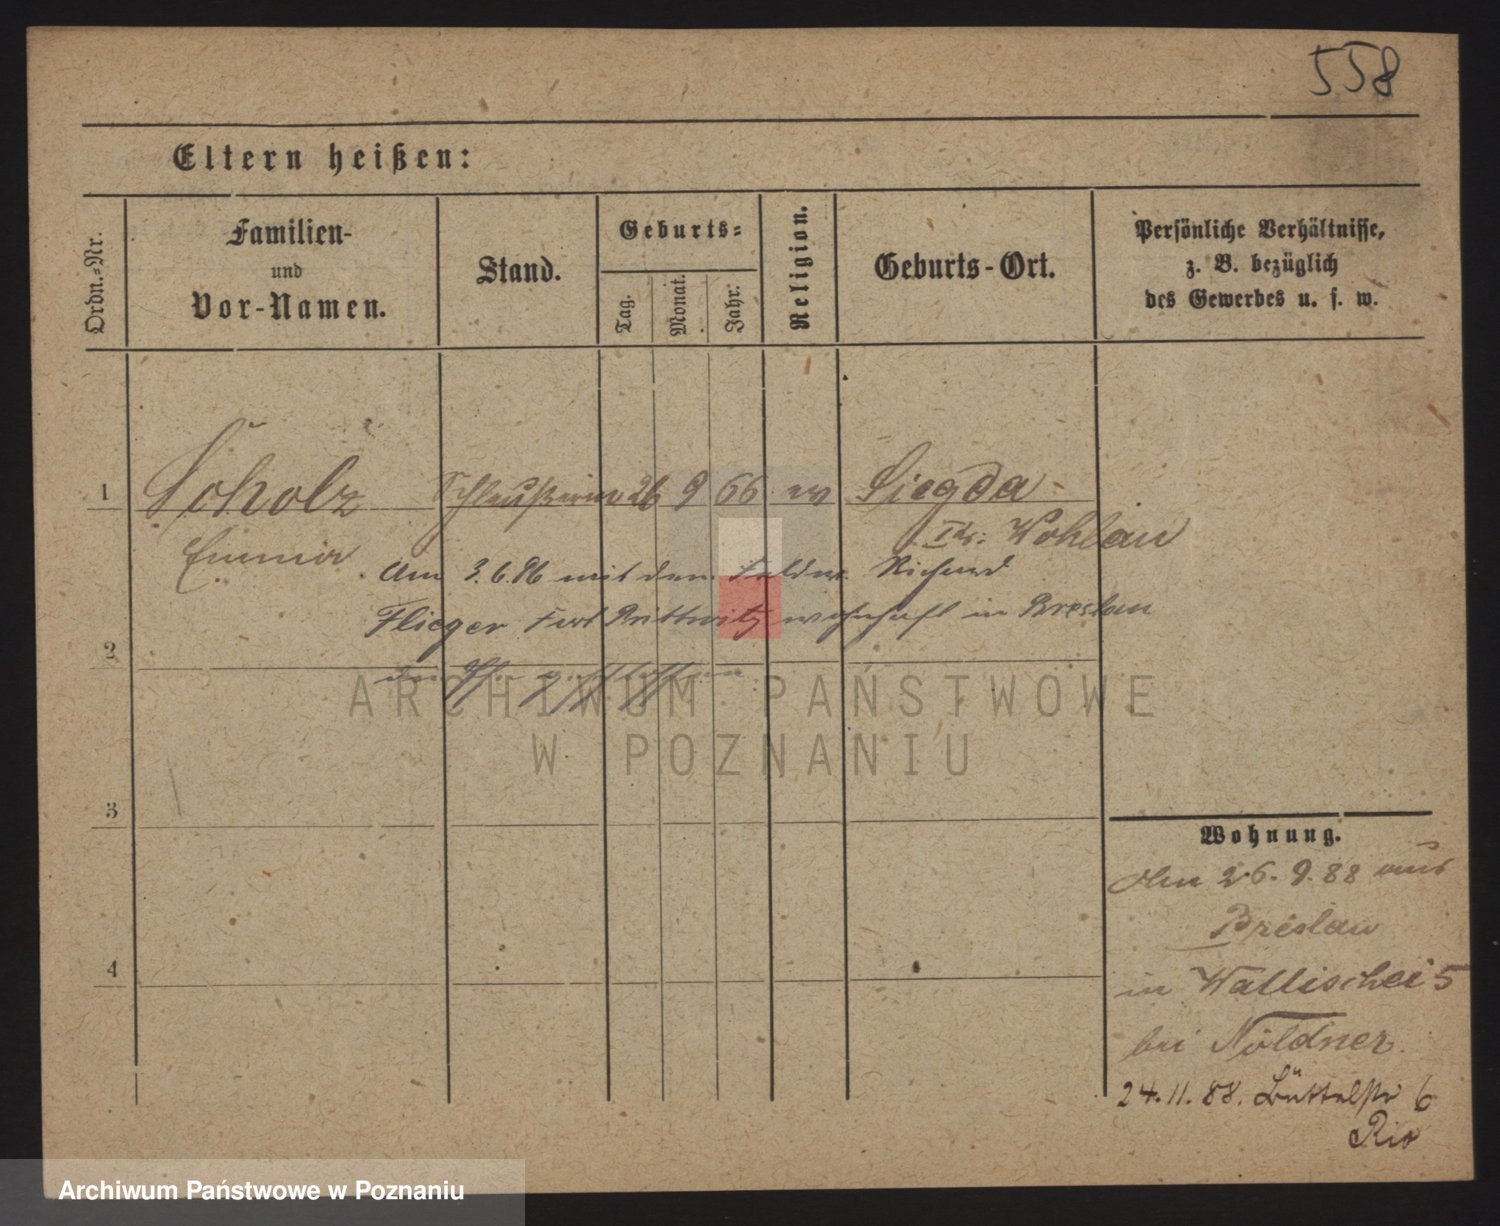 558
Eltern heißen:
Ordn.-Nr.
Familien-
und
Vor-Namen.
Stand.
Geburts-
Tag.
Monat.
Jahr.
Religion.
Geburts-Ort.
Persönliche Verhältnisse,
z. B. bezüglich
des Gewerbes u. s. w.
1 Scholz 26 9 66 ev Siegda
Emma Kr. Wohlau
Am 3.6.86 mit dem Richard
Flieger Fort Prittwitz wohnhaft in Breslau
2
3
4
Wohnung.
Am 26.9.88 aus
Breslau
in Wallischei 5
bei Nöldner
24.11.88. Büttelstr 6
ARCHIWUM PAŃSTWOWE
W POZNANIU
Archiwum Państwowe w Poznaniu